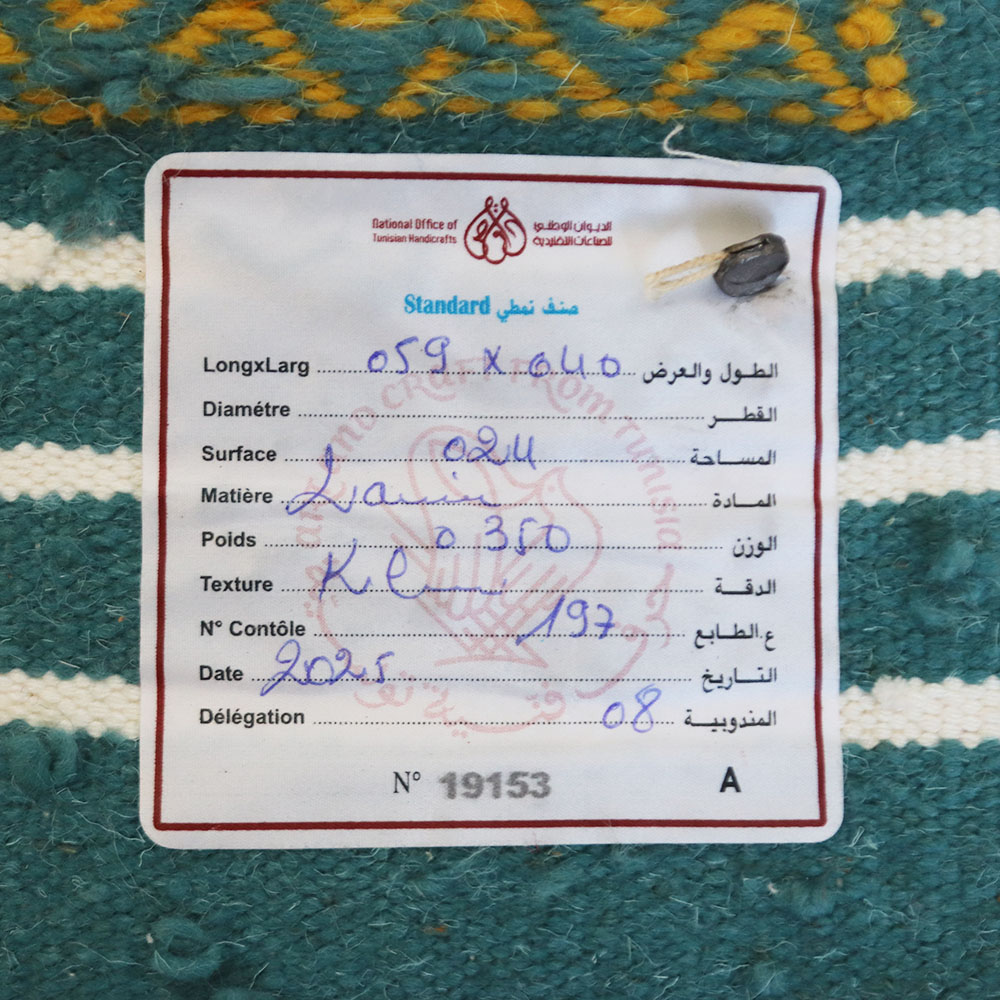 National Office of الديوان الوطني
Tunisian Handicrafts للصناعات التقليدية
Standard صنف نمطي
LongxLarg 059 x 040 الطول والعرض
Diamétre القطر
Surface 024 المساحة
Matière Laine المادة
Poids 0 350 الوزن
Texture الدقة
N° Contôle 197 ع.الطابع
Date 2025 التاريخ
Délégation 08 المندوبية
N° 19153 A
ART AND CRAFT FROM TUNISIA